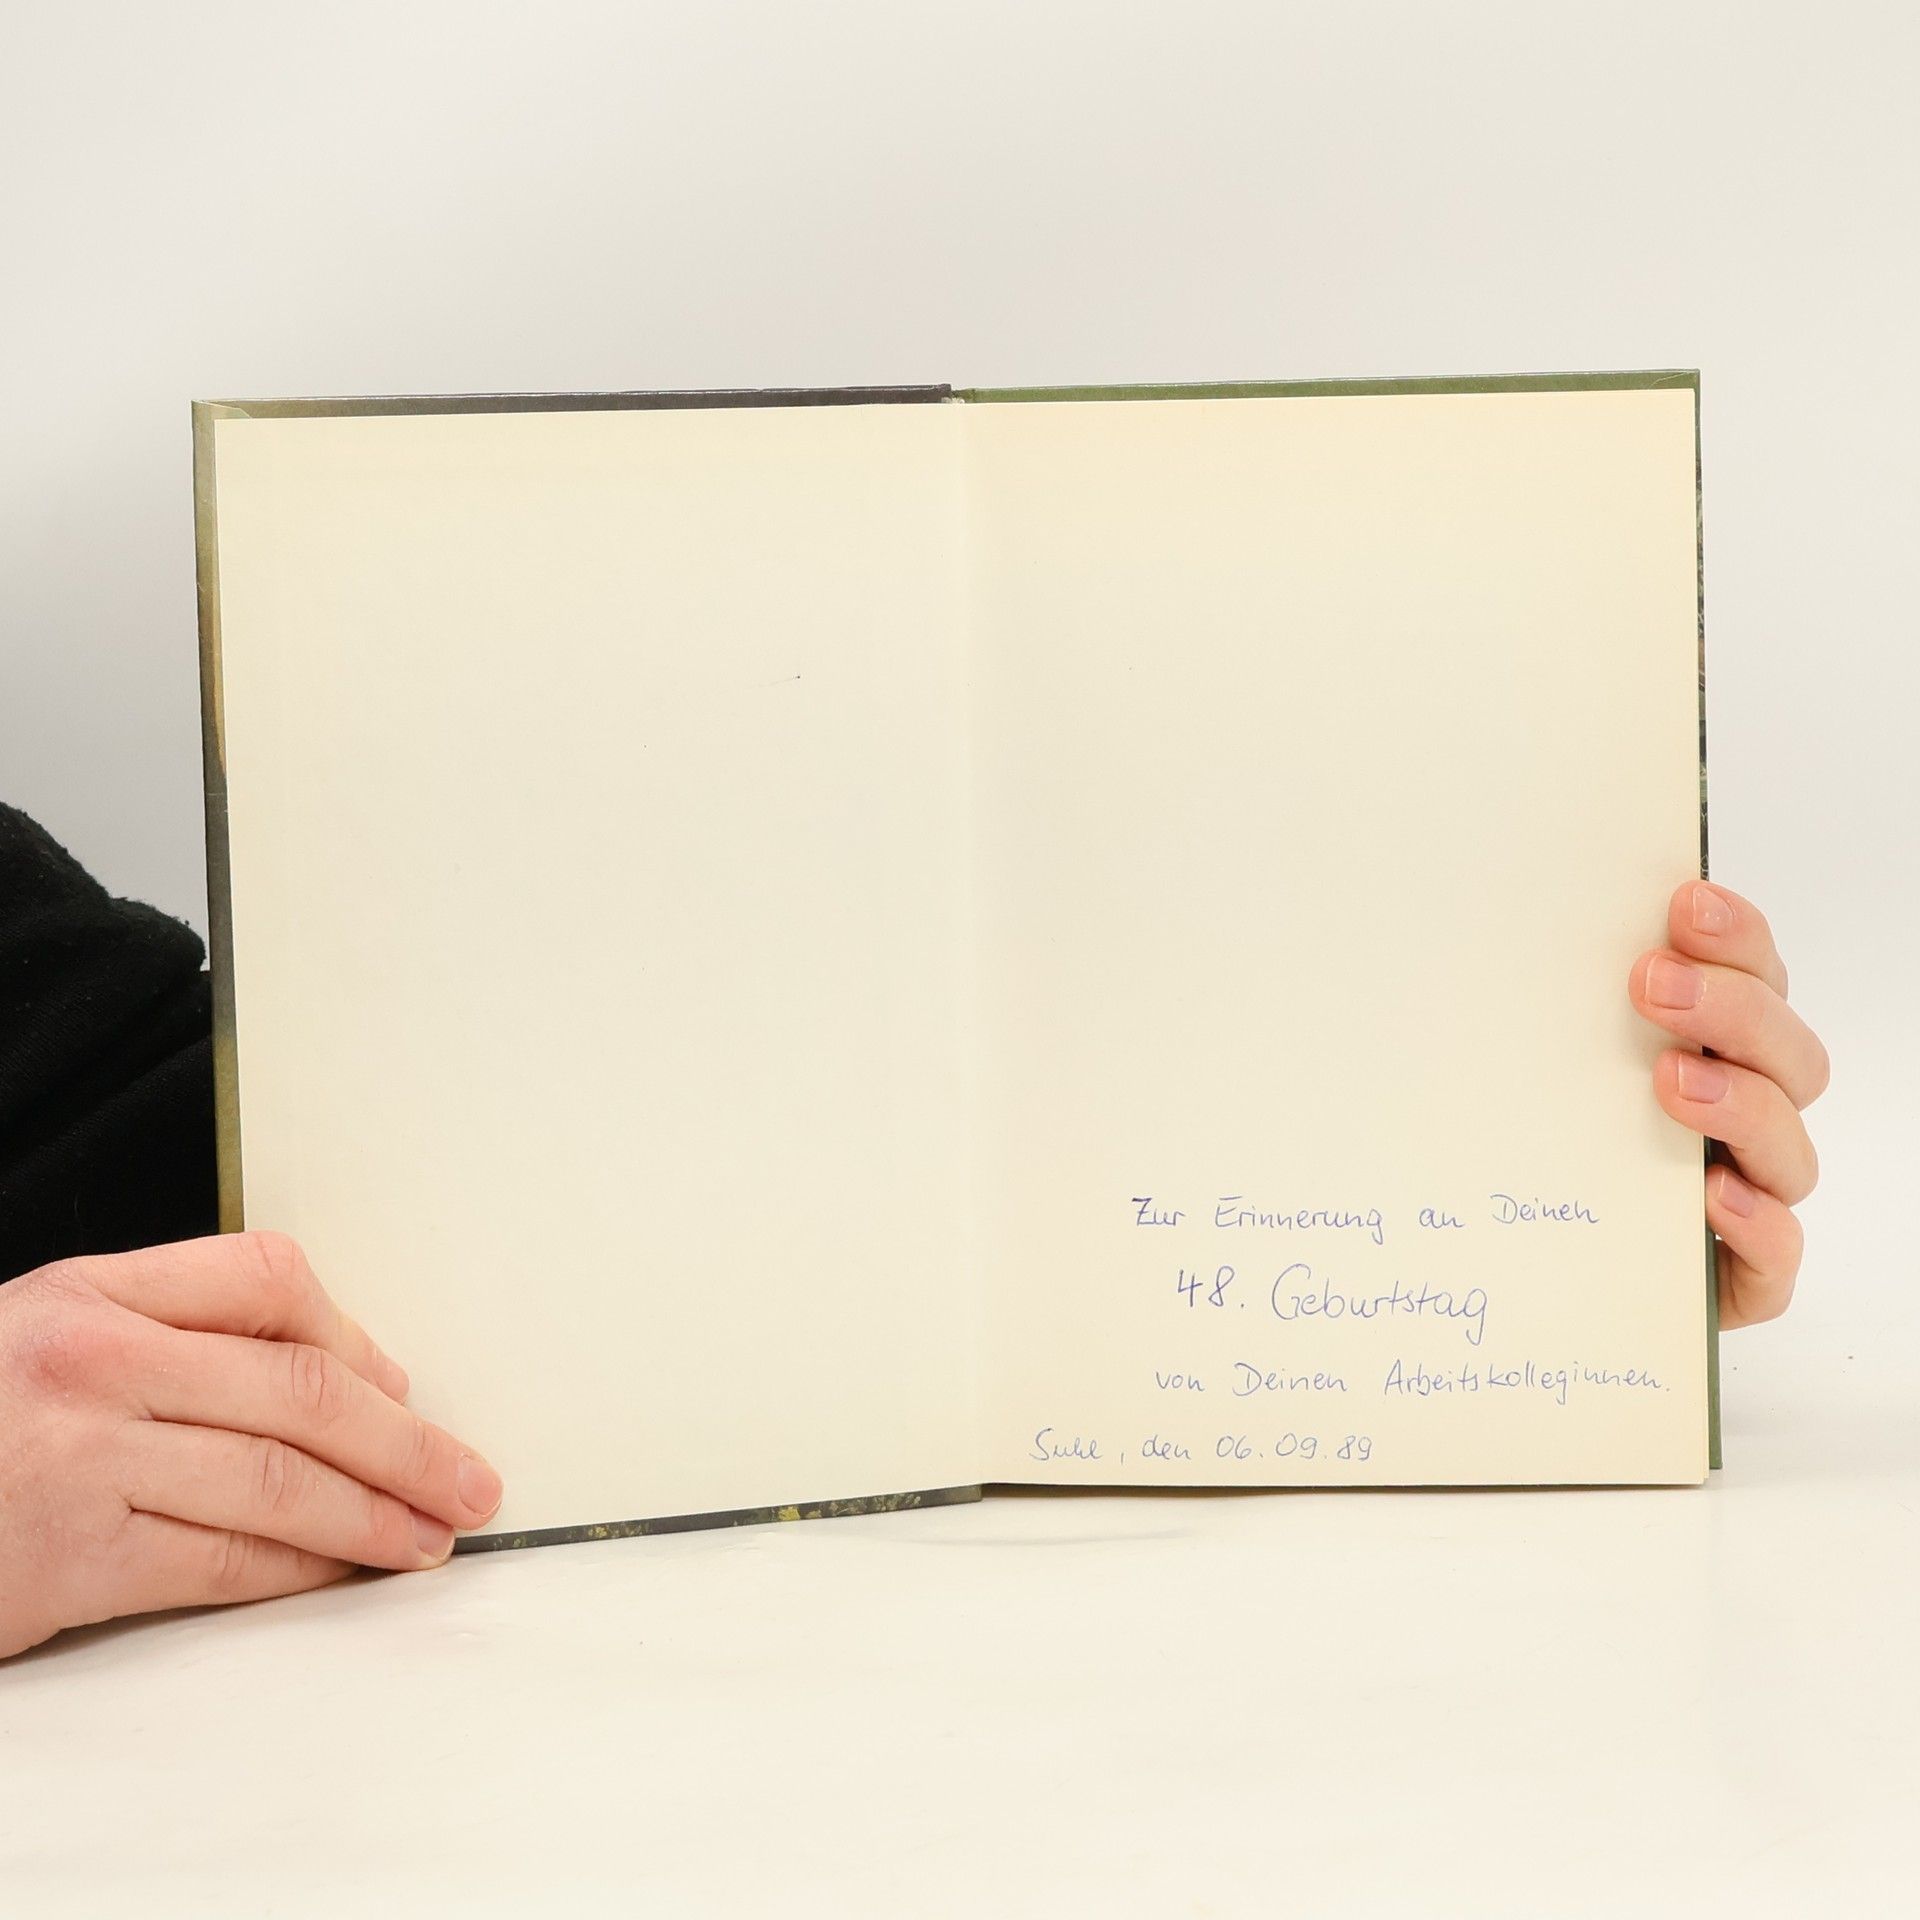 Zur Erinnerung an Deinen
48. Geburtstag
von Deinen Arbeitskolleginnen.
Suhl, den 06.09.89